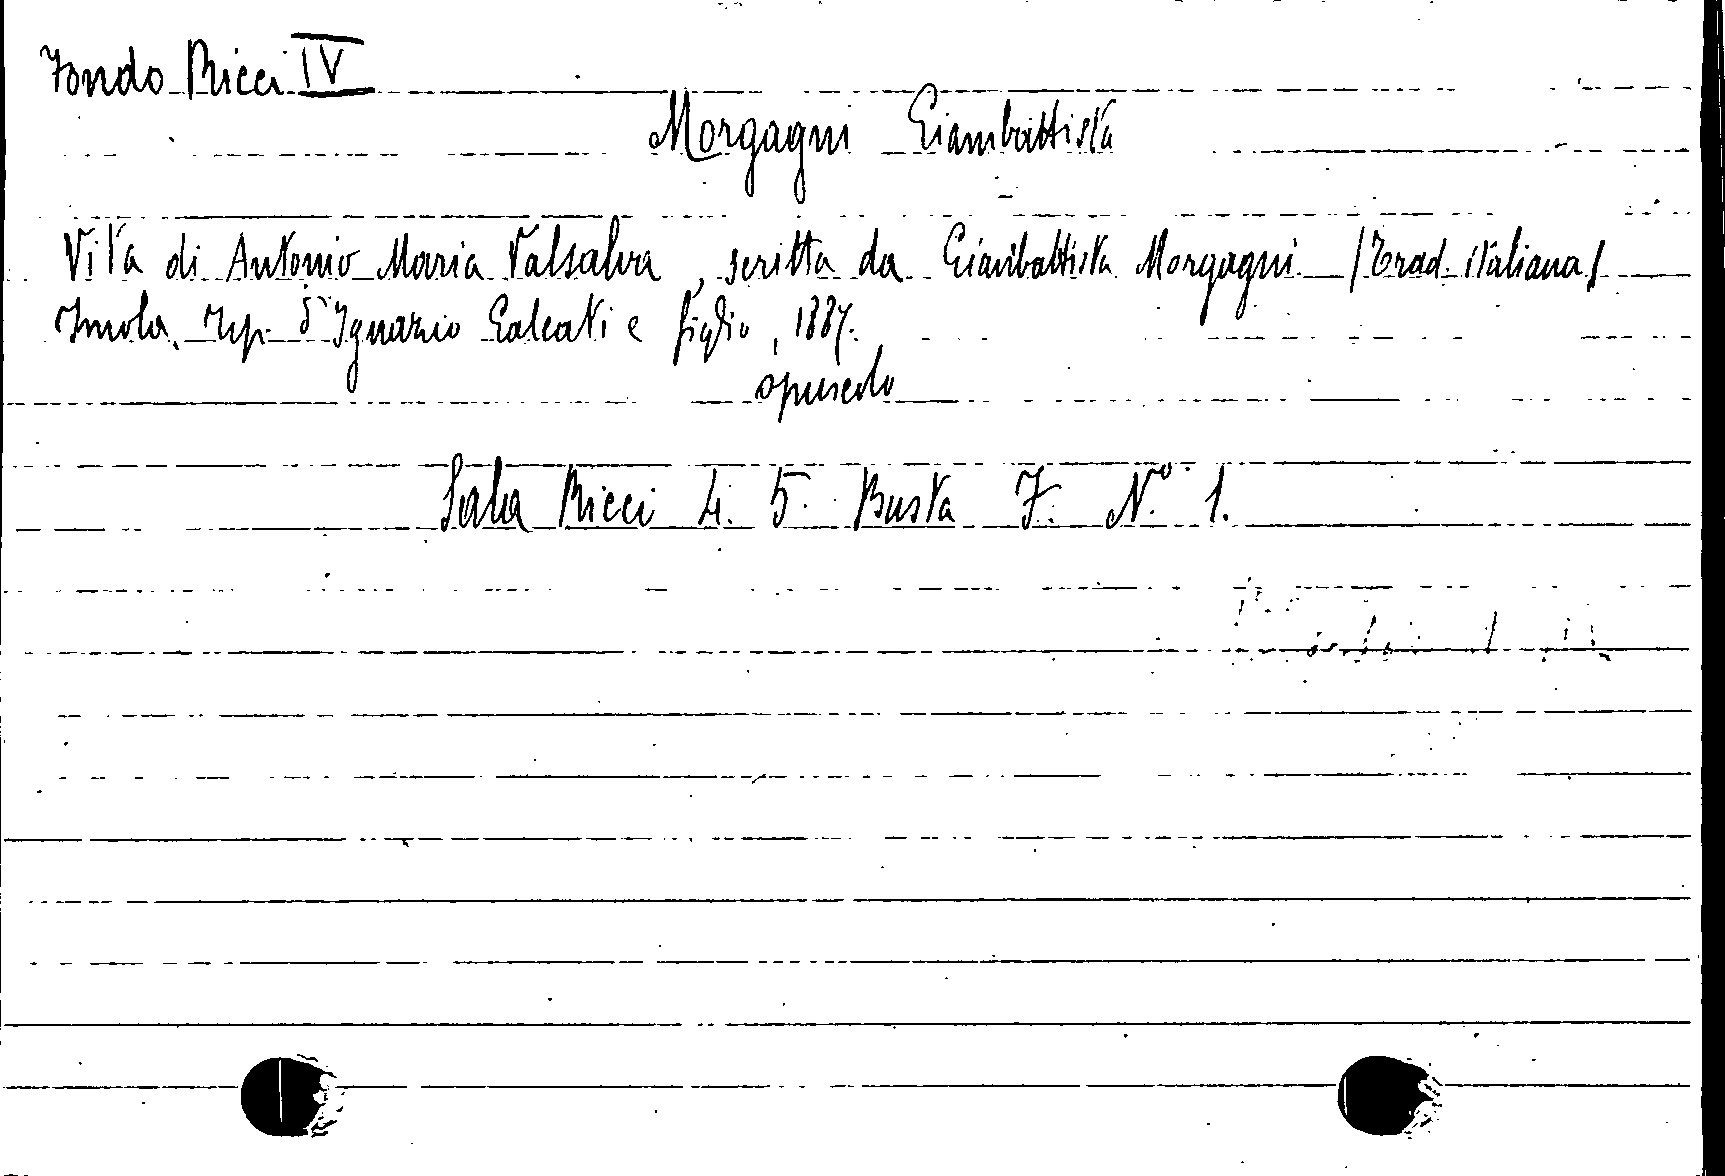 Fondo Ricci IV
Morgagni Giambattista
Vita di Antonio Maria Valsalva, scritta da Giambattista Morgagni /Trad. italiana/
Imola, Tip. d'Ignazio Galeati e figlio, 1887.
opuscolo
Sala Ricci 4. 5. Busta F. N.º 1.